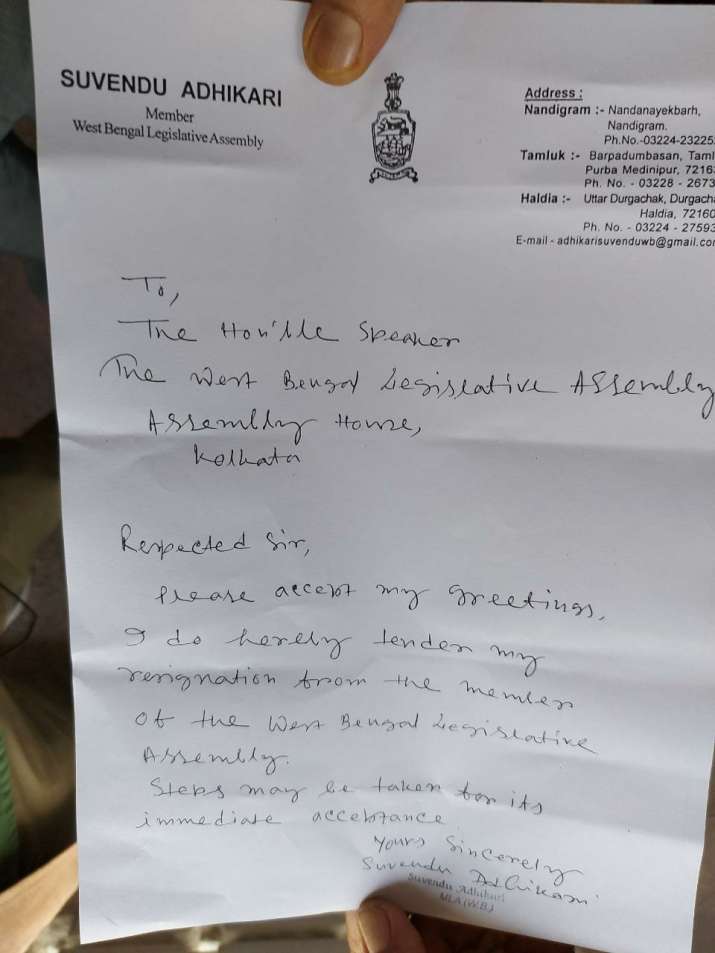 SUVENDU ADHIKARI
Member
West Bengal Legislative Assembly
Address :
Nandigram :- Nandanayekbarh,
Nandigram.
Ph.No.-03224-23225
Tamluk :- Barpadumbasan, Taml
Purba Medinipur, 7216
Ph. No. - 03228 - 2673
Haldia :- Uttar Durgachak, Durgach
Haldia, 72160
Ph. No. - 03224 - 27593
E-mail - adhikarisuvenduwb@gmail.com
To,
The Hon'ble Speaker
The West Bengal Legislative Assembly
Assembly House,
Kolkata
Respected Sir,
Please accept my greetings,
I do hereby tender my
resignation from the member
of the West Bengal Legislative
Assembly.
Steps may be taken for its
immediate acceptance
Yours Sincerely
Suvendu Adhikari
Suvendu Adhikari
MLA (W.B.)